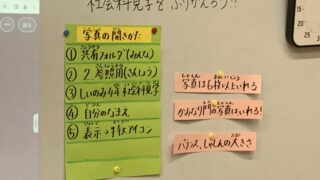 社会科見学をふりかえろう!!
写真の開きかた
① 共有フォルダ(みんな)
② 2.参照用(さんしょう)
③ しいのみ4年社会科見学
④ 自分のなまえ
⑤ 表示→特大アイコン
写真は6枚以上いれる
かみなり門の写真はいれる!
バランス、しゃしんの大きさ